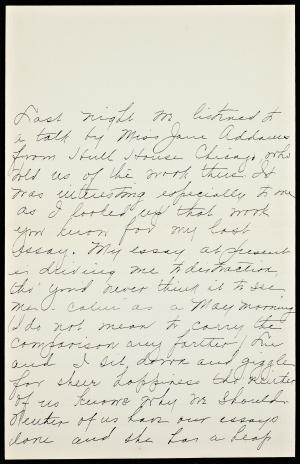 Last night we listened to
a talk by Miss Jane Addams
from Hull House Chicago who
told us of the work there. It
was interesting especially to me
as I looked up that work
you know for my last
essay. My essay at present
is driving me to distraction
tho' you'd never think it to see
me - calm as a May morning
I do not mean to carry the
comparison any farther.
and I sit down and giggle
for sheer happiness tho neither
of us knows why we should.
Neither of us have our essays
done and she has a heap